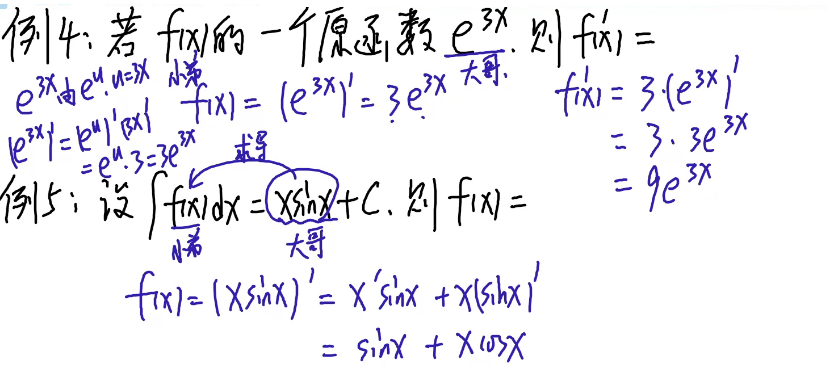 例4: 若 f(x)的一个原函数 e^{3x}. 则 f'(x) =
e^{3x}由e^u. u=3x 小弟 f(x) = (e^{3x})' = 3e^{3x} 大哥.
(e^{3x})' = (e^u)'(3x)'
= e^u·3 = 3e^{3x}
f'(x) = 3·(e^{3x})'
= 3·3e^{3x}
= 9e^{3x}
求导
例5: 设 ∫f(x)dx = xsinx + C. 则 f(x) =
小弟 大哥
f(x) = (xsinx)' = x'sinx + x(sinx)'
= sinx + xcosx